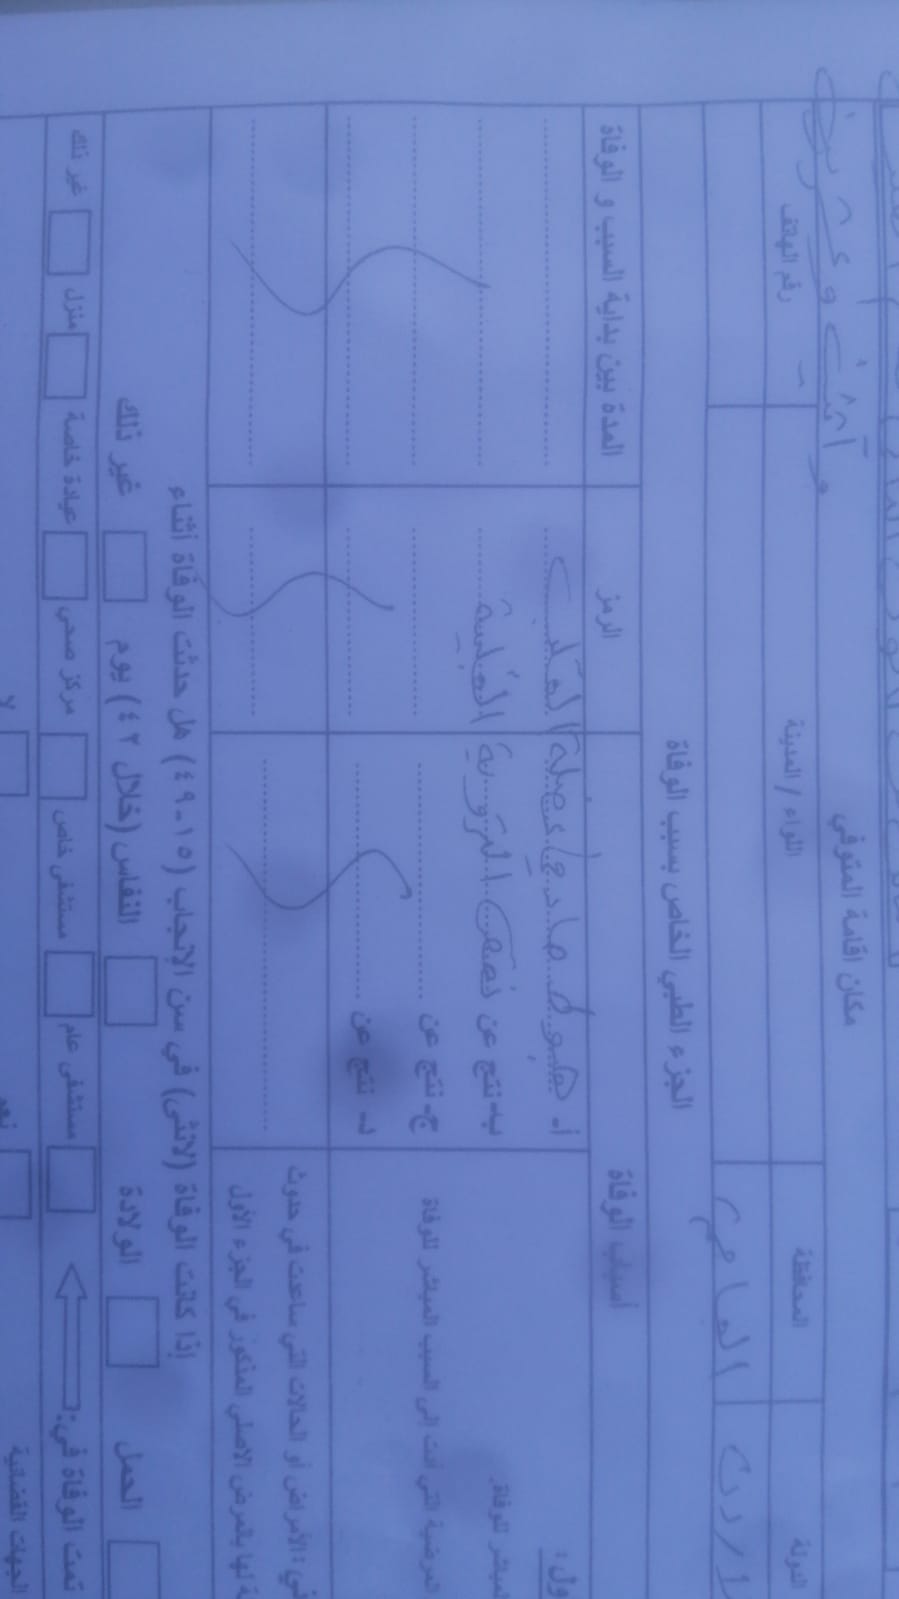 وآتشت وعشرين
مكان اقامة المتوفي
الدولة المحافظة اللواء / المدينة رقم الهاتف
الاردن العاصمة -
الجزء الطبي الخاص بسبب الوفاة
أسباب الوفاة الرمز المدة بين بداية السبب و الوفاة
ول :
أ- هبوط حاد في عضلة القلب
المباشر للوفاة.
ب- نتج عن نقص التروية القلبية
المرضية التي أدت إلى السبب المباشر للوفاة
ج- نتج عن
د- نتج عن
ني : الأمراض أو الحالات التي ساعدت في حدوث
ة لها بالمرض الاصلي المذكور في الجزء الأول
إذا كانت الوفاة (لانثى) في سن الإنجاب (١٥-٤٩) هل حدثت الوفاة أثناء
الحمل الولادة النفاس (خلال ٤٢) يوم غير ذلك
تمت الوفاة في: مستشفى عام مستشفى خاص مركز صحي عيادة خاصة منزل غير ذلك
الجهات القضائية نعم لا